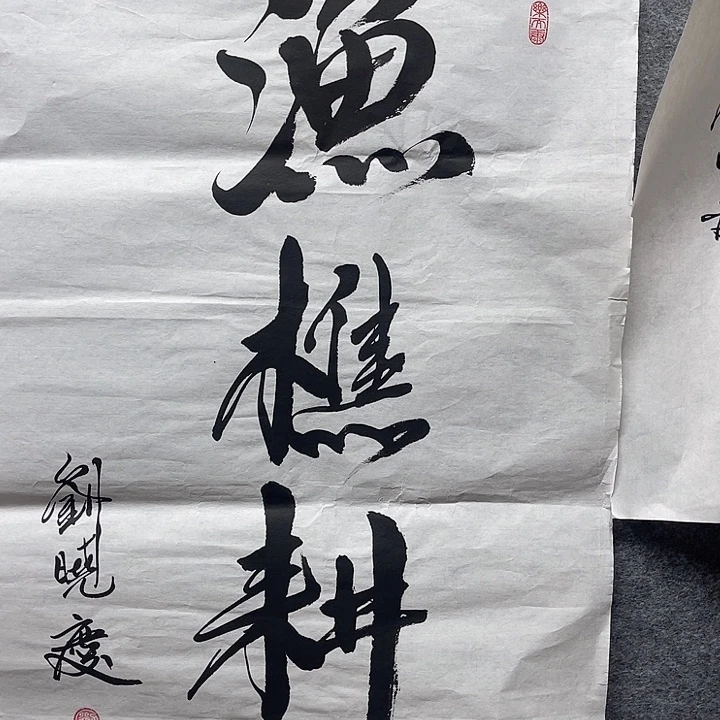 漁樵耕
劉曉慶